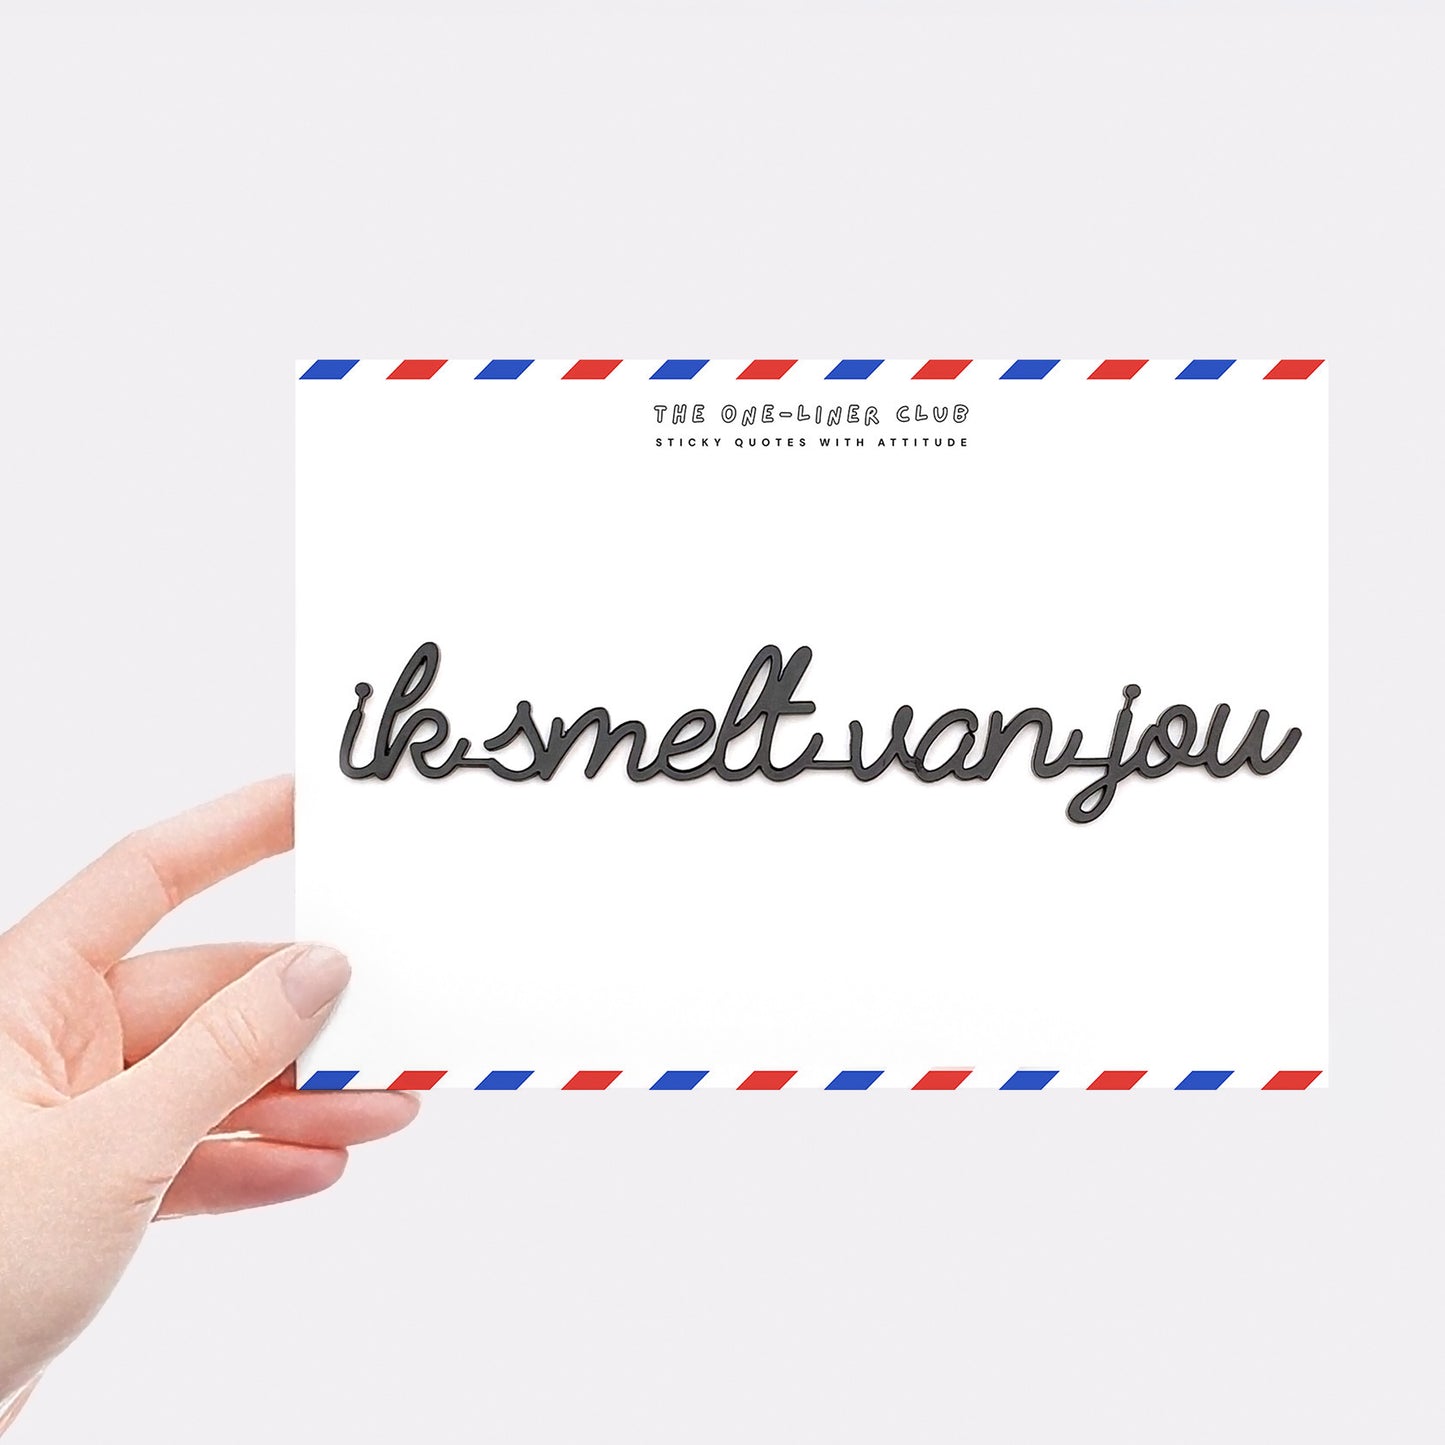 THE ONE-LINER CLUB
STICKY QUOTES WITH ATTITUDE
ik smelt van jou